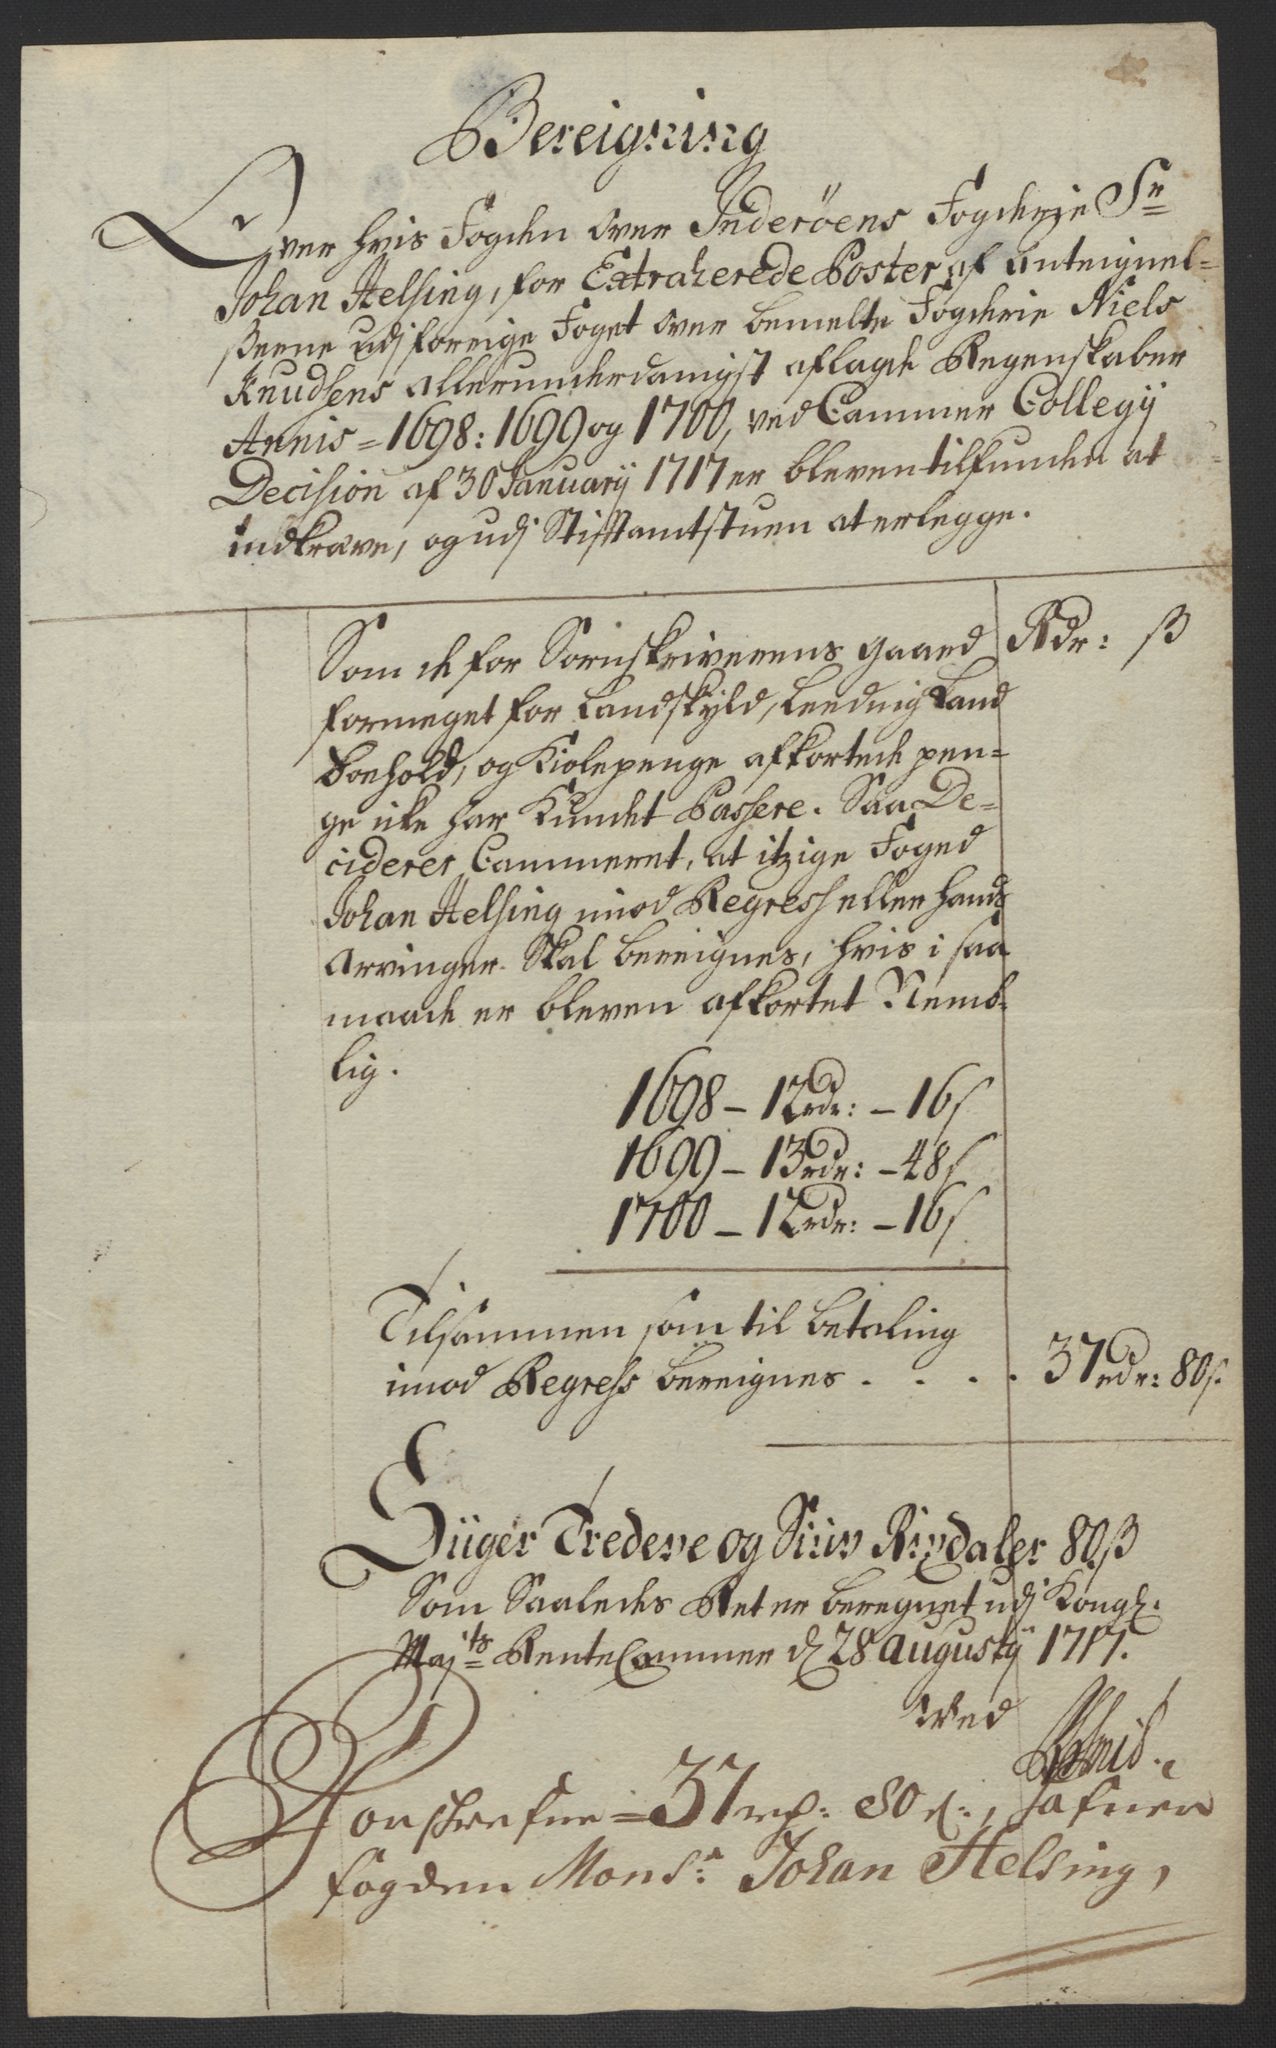 Bereigning
Over hvis Fogden over Inderöens Fogderje Sr
Johan Helsing, for Extraherede Poster af Anteignel-
ßerne udj forrige Foget over bemelte Fogderie Niels
Knudsens allerunderdanigst aflagde Regenskaber
Annis = 1698: 1699 og 1700, ved Cammer Collegÿ
Decision af 30 Januarÿ 1717 er bleven tilfunden at
indkræve, og udj Stifftamtstuen at erlegge.
Rdr: ß
Som de for Sornskriverens gaard
formeget for Landskyld, Leeding Land
boehold, og Kiolepenge afkortede pen-
ge icke har Kundet Passere. Saa De-
ciderer Cammeret, at itzige Foged
Johan Helsing imod Regress eller hands
Arvinger Skal bereignes, hvis i saa
maade er bleven afkortet Nemb-
lig.
1698 - 12 rdr: - 16 s
1699 - 13 rdr: - 48 s
1700 - 12 rdr: - 16 s
Tilsammen som til betaling
imod Regress bereignes . . . . 37 rdr: 80 s.
Siiger Tredeve og Siuv Rixdaler 80 ß
Som Saaledes Ret er beregnet udj Kongl.
Maj:ts RenteCammer d. 28 Augustÿ 1717.
Ved
Forskrefne = 37 rd: 80 s:, hafuer
fogden Monsr: Johan Helsing,